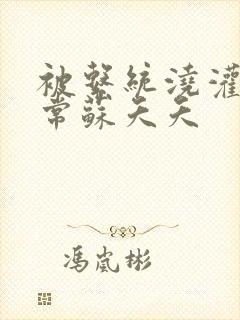 被繫統澆灌
常蘇夭夭
馮嵐彬